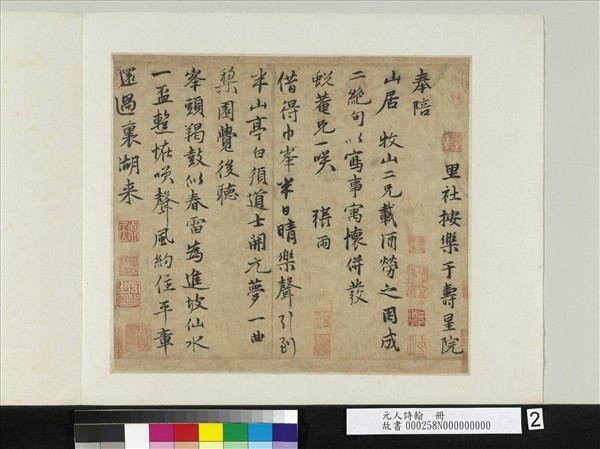 里社按樂于壽星院
奉陪
山居 牧山二兄載酒勞之因成
二絕句以寫事寓懷併發
蛻菴兄一咲 張雨
借得巾峯半日晴樂聲引到
半山亭白須道士開元夢一曲
梨園覺後聽
峯頭羯鼓似春雷為進坡仙水
一盃整恠咲聲風約住平章
還過裏湖來
元人詩翰 冊
故書 000258N000000000
2